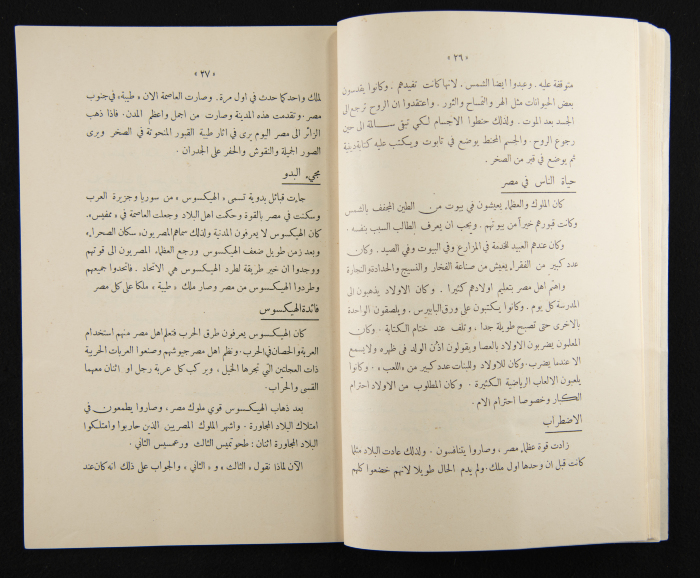 « ٢٦ »
متوقفة عليه . وعبدوا ايضا الشمس . لانها كانت تفيدهم . وكانوا يقدسون
بعض الحيوانات مثل الهر والتمساح والثور . واعتقدوا ان الروح ترجع الى
الجسد بعد الموت . ولذلك حنطوا الاجسام لكي تبقى سالمة الى حين
رجوع الروح . والجسم المحنط يوضع في تابوت ويكتب عليه كتابة دينية
ثم يوضع في قبر من الصخر .
حياة الناس في مصر
كان الملوك والعظماء يعيشون في بيوت من الطين المجفف بالشمس
وكانت قبورهم خيراً من بيوتهم . ويجب ان يعرف الطالب السبب بنفسه .
وكان عندهم العبيد للخدمة في المزارع وفي البيوت وفي الصيد . وكان
عدد كبير من الفقراء يعيش من صناعة الفخار والنسيج والحدادة والنجارة
واهتم اهل مصر بتعليم اولادهم كثيرا . وكان الاولاد يذهبون الى
المدرسة كل يوم . وكانوا يكتبون على ورق البابيرس . ويلصقون الواحدة
بالاخرى حتى تصبح طويلة جدا . وتلف عند ختام الكتابة . وكان
المعلمون يضربون الاولاد بالعصا ويقولون اذن الولد في ظهره ولا يسمع
الا عندما يضرب . وكان للاولاد وللبنات عدد كبير من «اللعب» . وكانوا
يلعبون الالعاب الرياضية الكثيرة . وكان المطلوب من الاولاد احترام
الكبار وخصوصا احترام الام .
الاضطراب
زادت قوة عظماء مصر ، وصاروا يتنافسون . ولذلك عادت البلاد مثلما
كانت قبل ان وحدها اول ملك . ولم يدم الحال طويلا لانهم خضعوا كلهم
« ٢٧ »
لملك واحد كما حدث في اول مرة . وصارت العاصمة الان « طيبة » في جنوب
مصر . وتقدمت هذه المدينة وصارت من اجمل واعظم المدن . فاذا ذهب
الزائر الى مصر اليوم يرى في اثار طيبة القبور المنحوتة في الصخر ويرى
الصور الجميلة والنقوش والحفر على الجدران .
مجيء البدو
جاءت قبائل بدوية تسمى « الهيكسوس » من سوريا وجزيرة العرب
وسكنت في مصر بالقوة وحكمت اهل البلاد وجعلت العاصمة في « ممفيس » .
كان الهيكسوس لا يعرفون المدنية ولذلك سماهم المصريون «سكان الصحراء»
وبعد زمن طويل ضعف الهيكسوس ورجع العظماء المصريون الى قوتهم
ووجدوا ان خير طريقة لطرد الهيكسوس هي الاتحاد . فاتحدوا جميعهم
وطردوا الهيكسوس من مصر وصار ملك « طيبة » ملكا على كل مصر
فائدة الهيكسوس
كان الهيكسوس يعرفون طرق الحرب فتعلم اهل مصر منهم استخدام
العربة والحصان في الحرب . ونظم اهل مصر جيوشهم وصنعوا العربات الحربية
ذات العجلتين التي تجرها الخيل . ويركب كل عربة رجل او اثنان معهما
القسي والحراب .
بعد ذهاب الهيكسوس قوي ملوك مصر ، وصاروا يطمعون في
امتلاك البلاد المجاورة . واشهر الملوك المصريين الذين حاربوا وامتلكوا
البلاد المجاورة اثنان : طحوتميس الثالث ورعمسيس الثاني .
الآن لماذا نقول « الثالث » و « الثاني » والجواب على ذلك انه كان عند